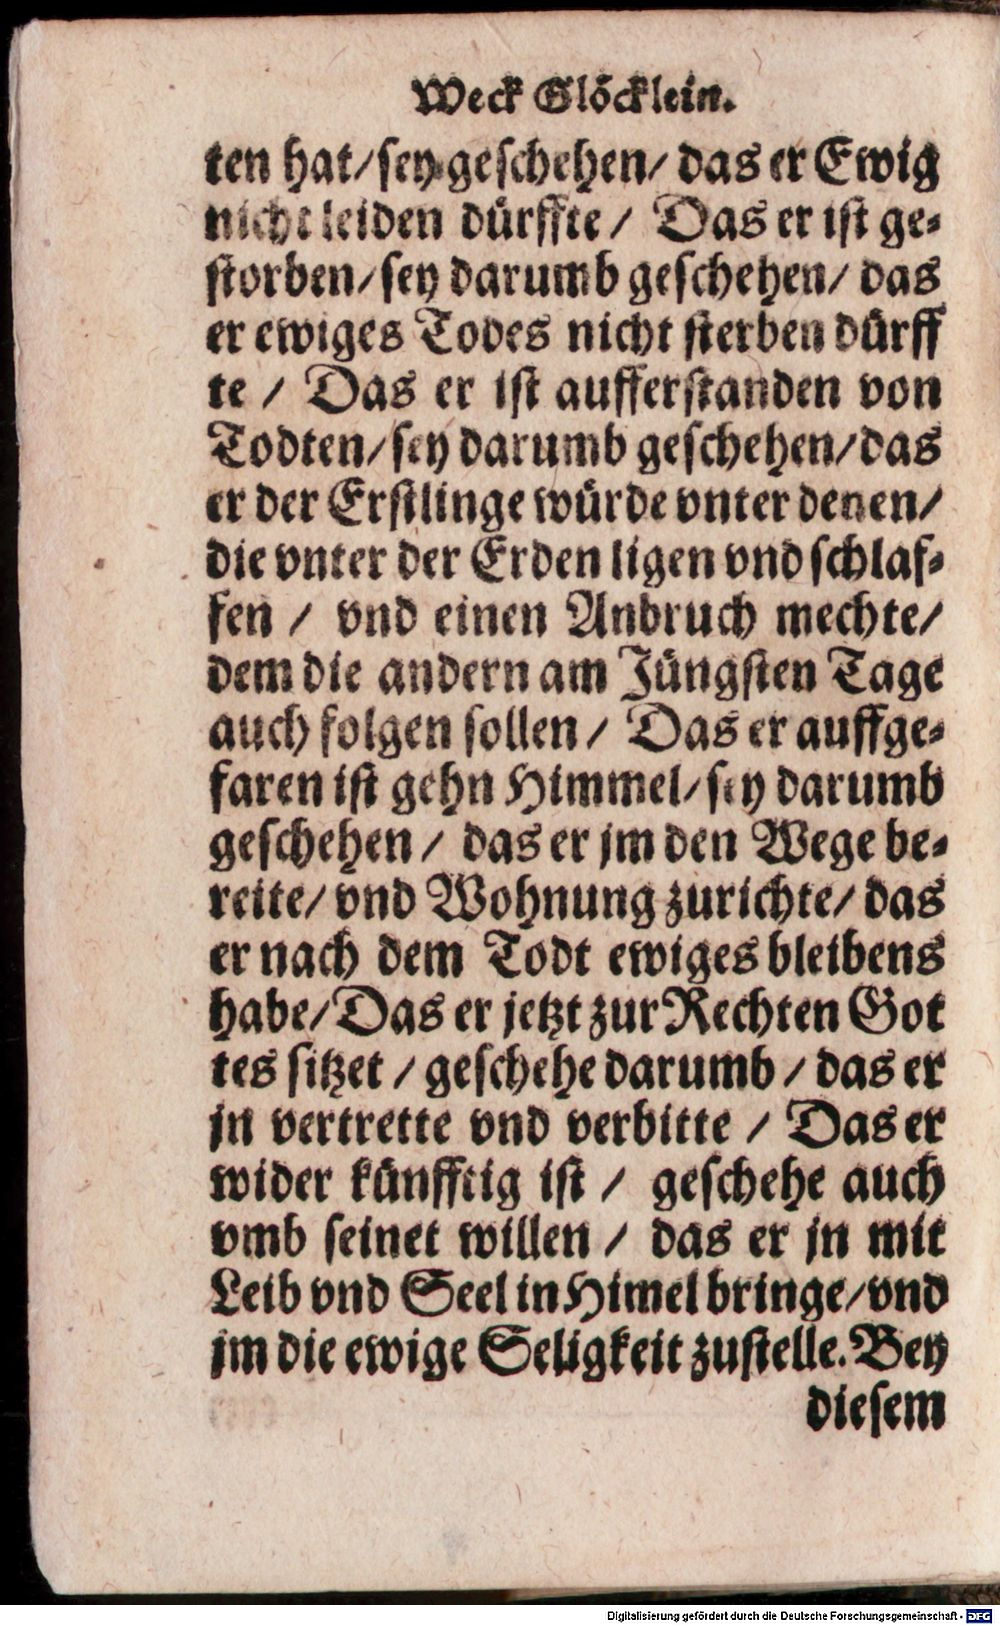 Weck Glöcklein.
ten hat/sey geschehen/ das er Ewig
nicht leiden dürffte/ Das er ist ge⸗
storben/sey darumb geschehen/ das
er ewiges Todes nicht sterben dürff
te / Das er ist aufferstanden von
Todten/sey darumb geschehen/das
er der Erstlinge würde vnter denen/
die vnter der Erden ligen vnd schlaf⸗
fen / vnd einen Anbruch mechte/
dem die andern am Jüngsten Tage
auch folgen sollen/ Das er auffge⸗
faren ist gehn Himmel/sey darumb
geschehen/ das er jm den Wege be⸗
reite/ vnd Wohnung zurichte/ das
er nach dem Todt ewiges bleibens
habe/Das er jetzt zur Rechten Got
tes sitzet /geschehe darumb /das er
jn vertrette vnd verbitte / Das er
wider künfftig ist / geschehe auch
vmb seinet willen / das er jn mit
Leib vnd Seel in Himel bringe/vnd
jm die ewige Seligkeit zustelle. Bey
diesem
Digitalisierung gefördert durch die Deutsche Forschungsgemeinschaft - DFG